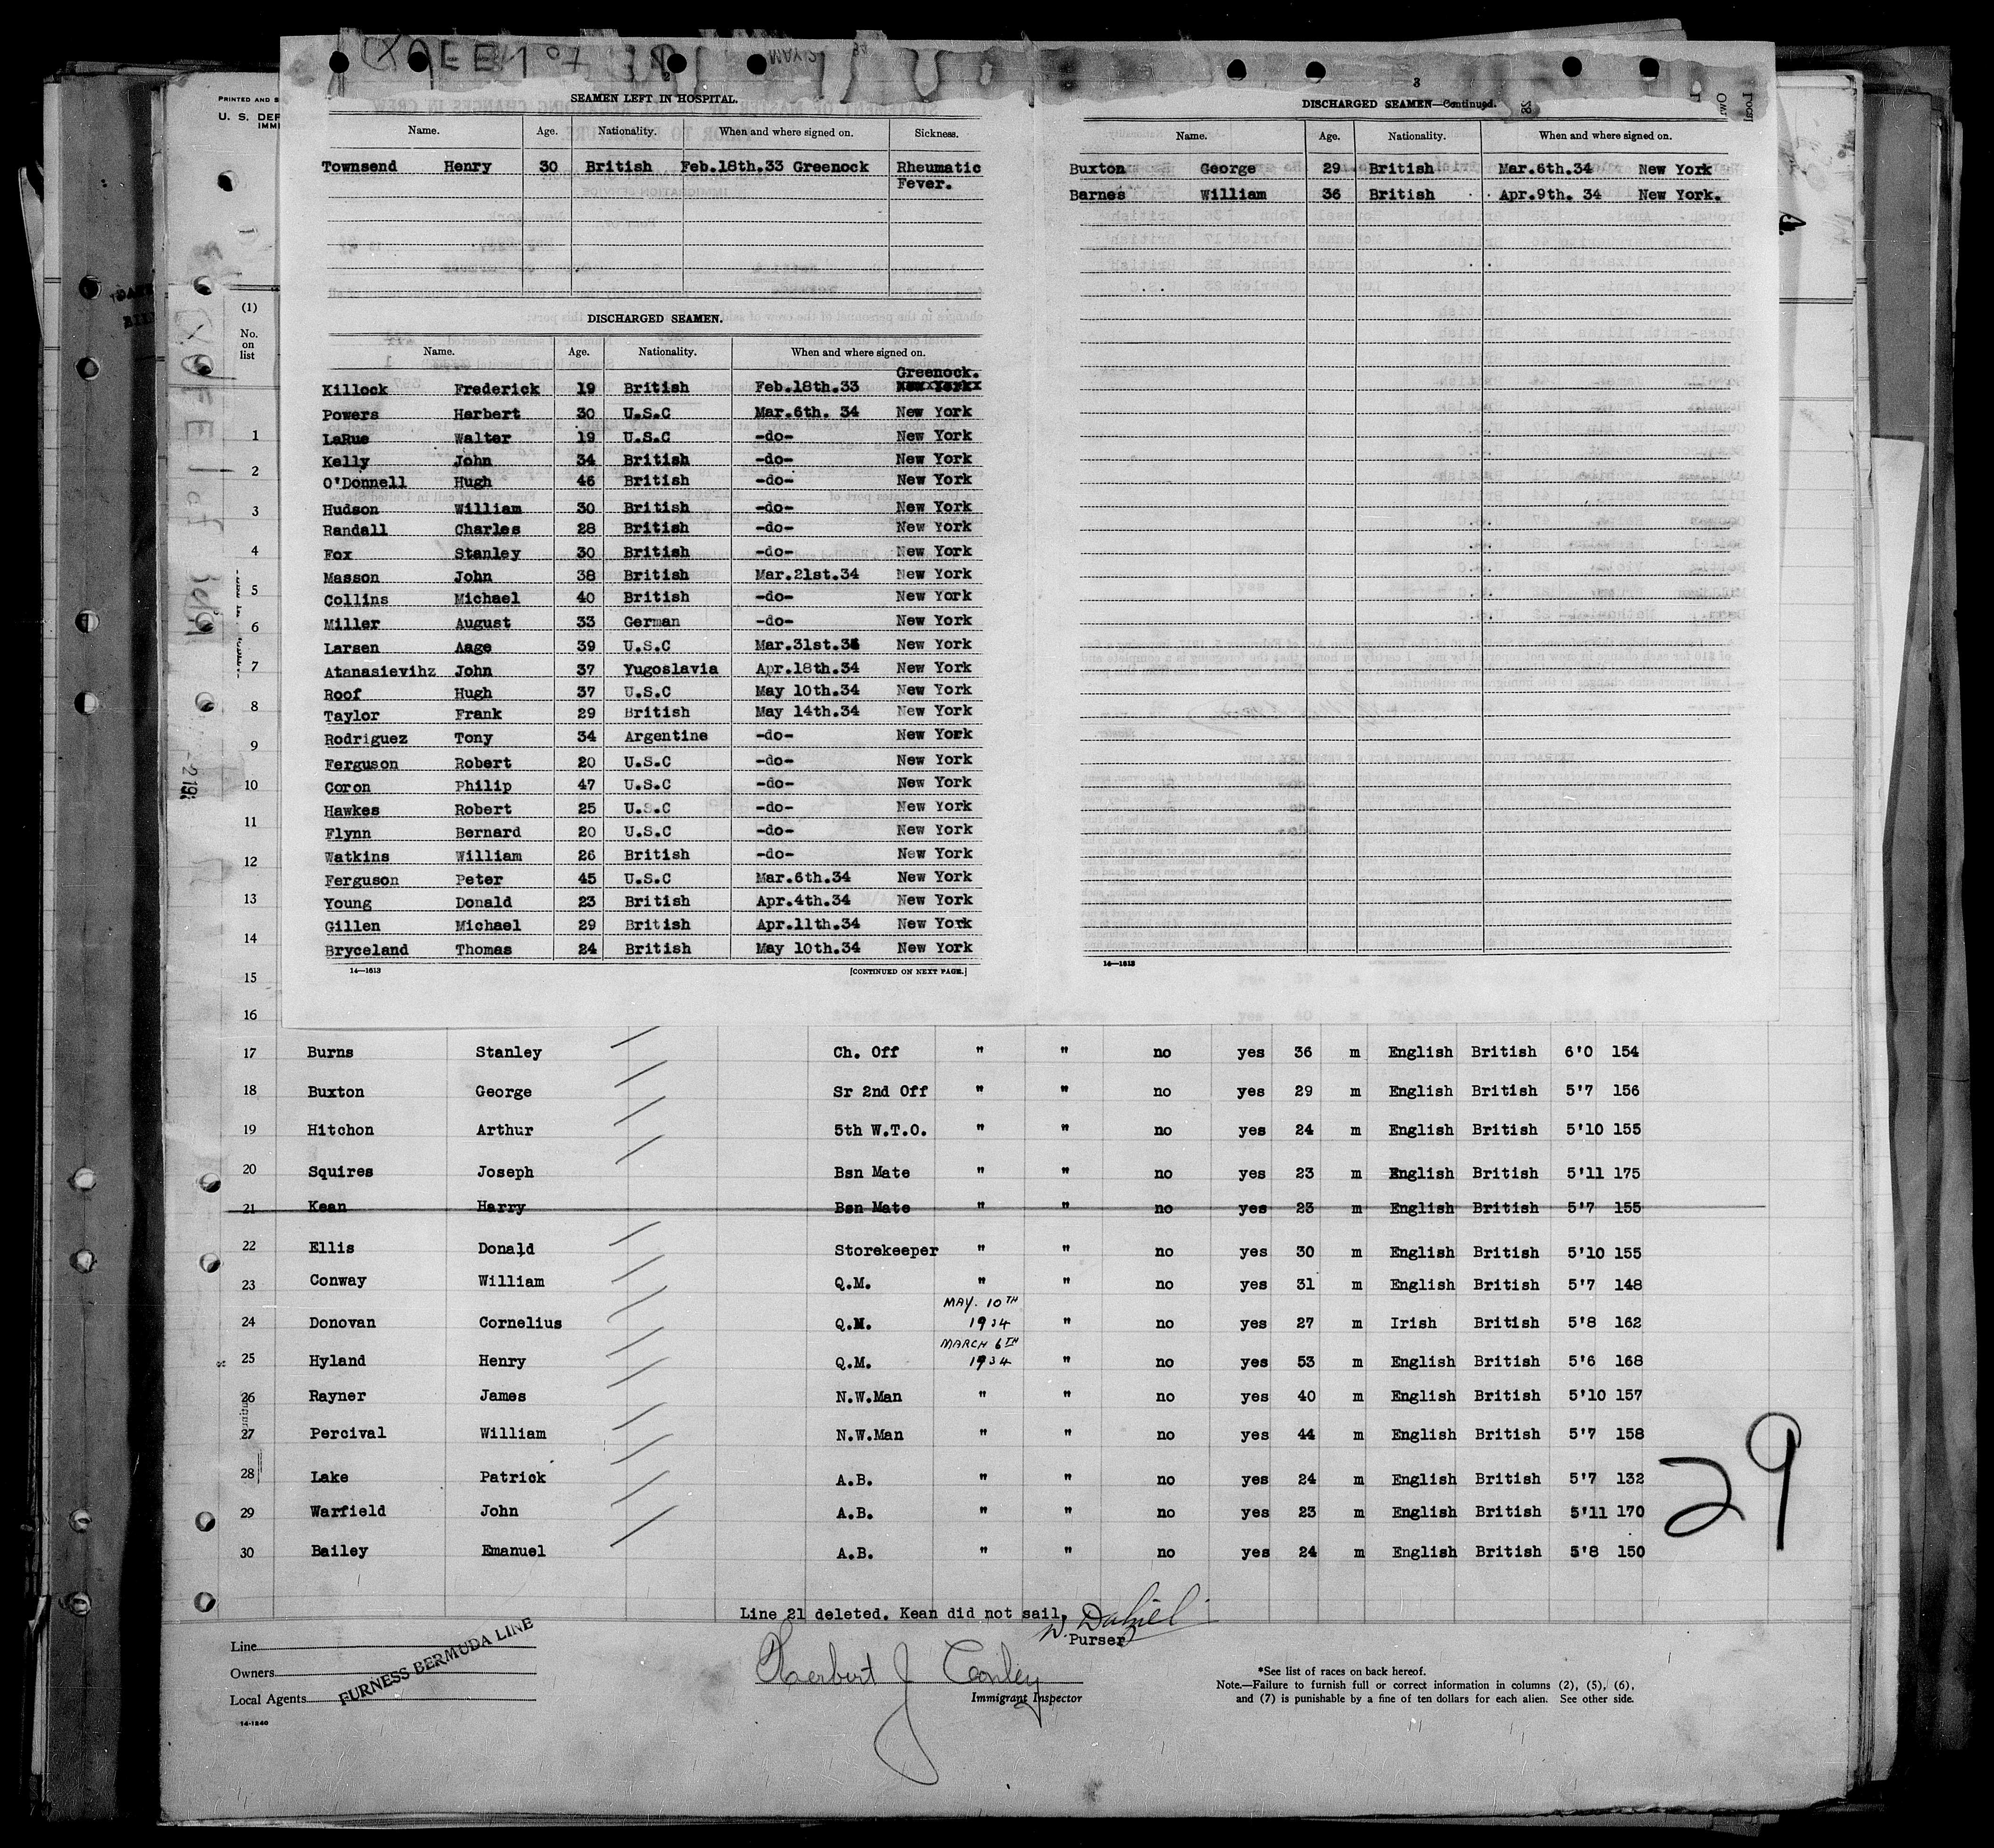 PRINTED AND S
U. S. DEP
IMMI
SEAMEN LEFT IN HOSPITAL.
Name. Age. Nationality. When and where signed on. Sickness.
Townsend Henry 30 British Feb.18th.33 Greenock Rheumatic
Fever.
DISCHARGED SEAMEN.
Name. Age. Nationality. When and where signed on.
Greenock.
Killock Frederick 19 British Feb.18th.33 New York
Powers Herbert 30 U.S.C Mar.6th. 34 New York
LaRue Walter 19 U.S.C -do- New York
Kelly John 34 British -do- New York
O'Donnell Hugh 46 British -do- New York
Hudson William 30 British -do- New York
Randall Charles 28 British -do- New York
Fox Stanley 30 British -do- New York
Masson John 38 British Mar.21st.34 New York
Collins Michael 40 British -do- New York
Miller August 33 German -do- New York
Larsen Aage 39 U.S.C Mar.31st. New York
Atanasievihz John 37 Yugoslavia Apr.18th.34 New York
Roof Hugh 37 U.S.C May 10th.34 New York
Taylor Frank 29 British May 14th.34 New York
Rodriguez Tony 34 Argentine -do- New York
Ferguson Robert 20 U.S.C -do- New York
Coron Philip 47 U.S.C -do- New York
Hawkes Robert 25 U.S.C -do- New York
Flynn Bernard 20 U.S.C -do- New York
Watkins William 26 British -do- New York
Ferguson Peter 45 U.S.C Mar.6th.34 New York
Young Donald 23 British Apr.4th.34 New York
Gillen Michael 29 British Apr.11th.34 New York
Bryceland Thomas 24 British May 10th.34 New York
14—1613 [CONTINUED ON NEXT PAGE.]
3
DISCHARGED SEAMEN—Continued.
Name. Age. Nationality. When and where signed on.
Buxton George 29 British Mar.6th.34 New York
Barnes William 36 British Apr.9th. 34 New York.
14—1613
(1)
No.
on
list
1
2
3
4
5
6
7
8
9
10
11
12
13
14
15
16
17 Burns Stanley Ch. Off " " no yes 36 m English British 6'0 154
18 Buxton George Sr 2nd Off " " no yes 29 m English British 5'7 156
19 Hitchon Arthur 5th W.T.O. " " no yes 24 m English British 5'10 155
20 Squires Joseph Bsn Mate " " no yes 23 m English British 5'11 175
21 Kean Harry Bsn Mate " " no yes 23 m English British 5'7 155
22 Ellis Donald Storekeeper " " no yes 30 m English British 5'10 155
23 Conway William Q.M. " " no yes 31 m English British 5'7 148
MAY. 10TH
24 Donovan Cornelius Q.M. 1934 " no yes 27 m Irish British 5'8 162
MARCH 6TH
25 Hyland Henry Q.M. 1934 " no yes 53 m English British 5'6 168
26 Rayner James N.W.Man " " no yes 40 m English British 5'10 157
27 Percival William N.W.Man " " no yes 44 m English British 5'7 158
28 Lake Patrick A.B. " " no yes 24 m English British 5'7 132
29 Warfield John A.B. " " no yes 23 m English British 5'11 170
30 Bailey Emanuel A.B. " " no yes 24 m English British 5'8 150
29
Line 21 deleted. Kean did not sail.
Purser
Herbert J Conley
Immigrant Inspector
Line
Owners
Local Agents
FURNESS BERMUDA LINE
14-1240
*See list of races on back hereof.
Note.—Failure to furnish full or correct information in columns (2), (5), (6),
and (7) is punishable by a fine of ten dollars for each alien. See other side.